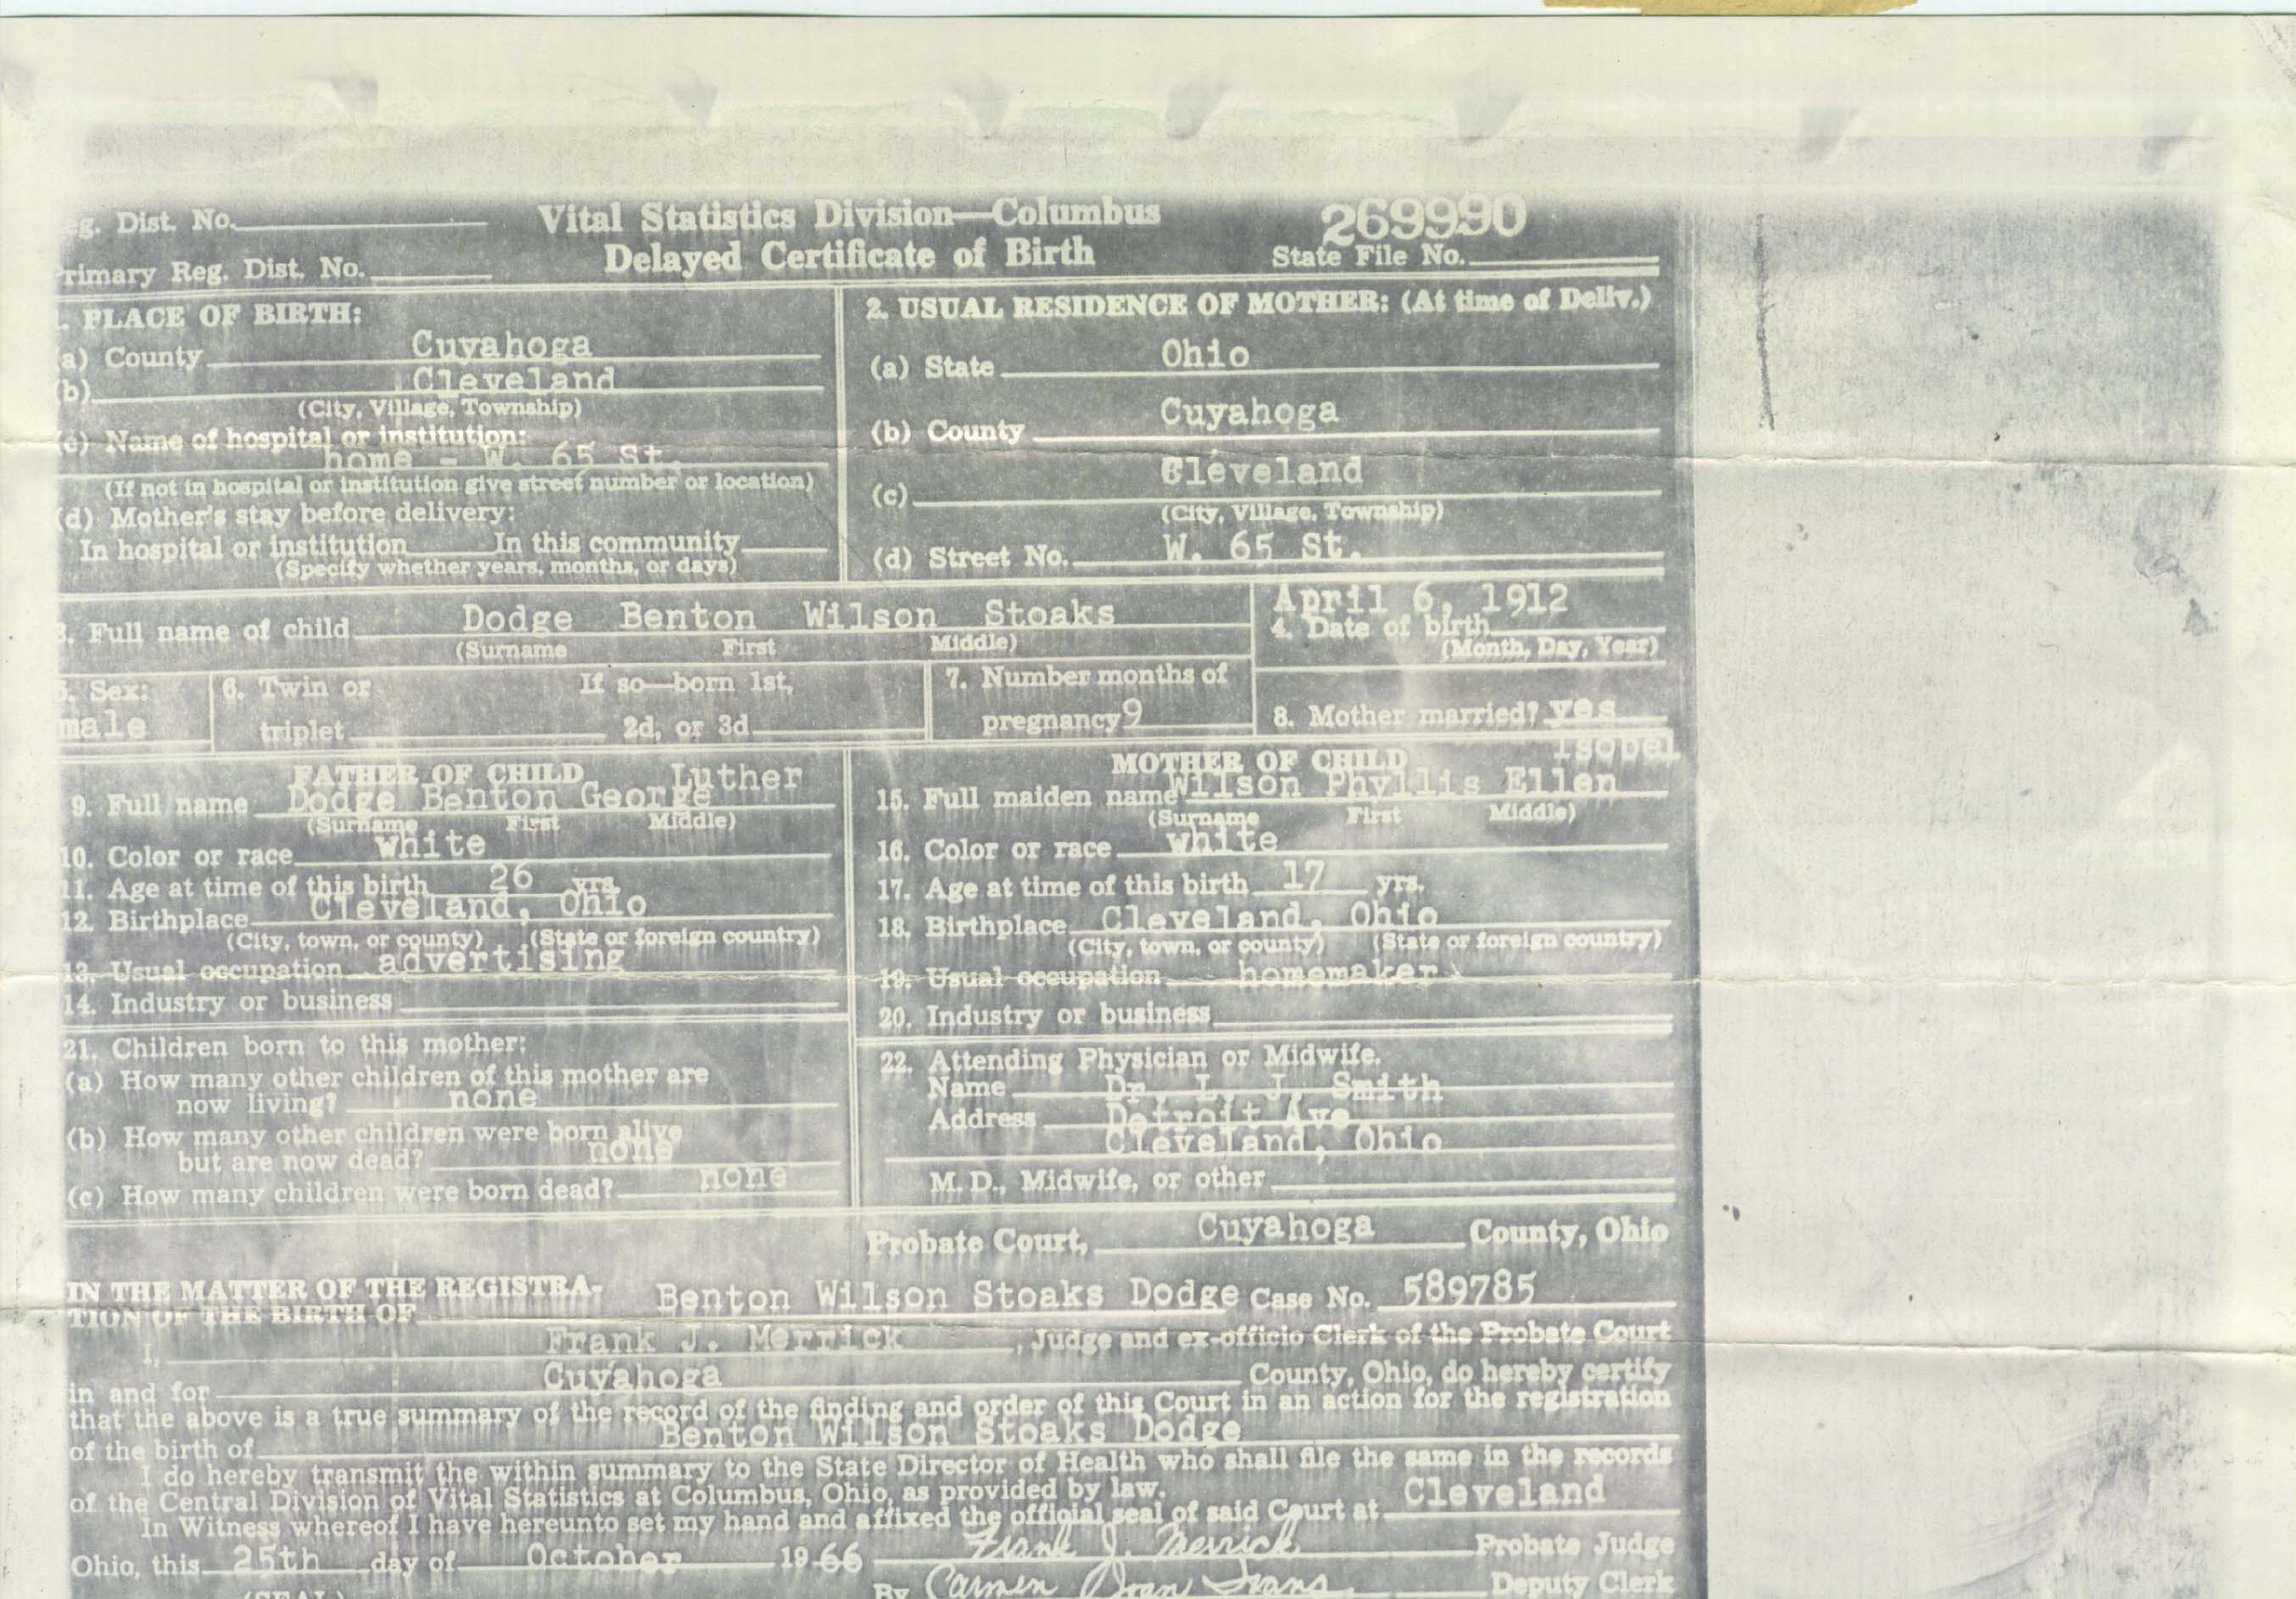 g. Dist. No.
Vital Statistics Division—Columbus
269990
rimary Reg. Dist. No.
Delayed Certificate of Birth
State File No.
. PLACE OF BIRTH:
(a) County Cuyahoga
(b) Cleveland
(City, Village, Township)
(c) Name of hospital or institution:
home - W. 65 St.
(If not in hospital or institution give street number or location)
(d) Mother's stay before delivery:
In hospital or institution In this community
(Specify whether years, months, or days)
2. USUAL RESIDENCE OF MOTHER: (At time of Deliv.)
(a) State Ohio
(b) County Cuyahoga
(c) Cleveland
(City, Village, Township)
(d) Street No. W. 65 St.
3. Full name of child Dodge Benton Wilson Stoaks
(Surname First Middle)
April 6, 1912
4. Date of birth
(Month, Day, Year)
5. Sex:
male
6. Twin or If so—born 1st,
triplet 2d, or 3d
7. Number months of
pregnancy 9
8. Mother married? yes
FATHER OF CHILD Luther
9. Full name Dodge Benton George
(Surname First Middle)
10. Color or race white
11. Age at time of this birth 26 yrs.
12. Birthplace Cleveland, Ohio
(City, town, or county) (State or foreign country)
13. Usual occupation advertising
14. Industry or business
MOTHER OF CHILD Isobel
15. Full maiden name Wilson Phyllis Ellen
(Surname First Middle)
16. Color or race white
17. Age at time of this birth 17 yrs.
18. Birthplace Cleveland, Ohio
(City, town, or county) (State or foreign country)
19. Usual occupation homemaker
20. Industry or business
21. Children born to this mother:
(a) How many other children of this mother are
now living? none
(b) How many other children were born alive
but are now dead? none
(c) How many children were born dead? none
22. Attending Physician or Midwife.
Name Dr. L. J. Smith
Address Detroit Ave
Cleveland, Ohio
M. D., Midwife, or other
Probate Court, Cuyahoga County, Ohio
IN THE MATTER OF THE REGISTRA-
TION OF THE BIRTH OF Benton Wilson Stoaks Dodge Case No. 589785
I, Frank J. Merrick, Judge and ex-officio Clerk of the Probate Court
in and for Cuyahoga County, Ohio, do hereby certify
that the above is a true summary of the record of the finding and order of this Court in an action for the registration
of the birth of Benton Wilson Stoaks Dodge
I do hereby transmit the within summary to the State Director of Health who shall file the same in the records
of the Central Division of Vital Statistics at Columbus, Ohio, as provided by law.
In Witness whereof I have hereunto set my hand and affixed the official seal of said Court at Cleveland
Ohio, this 25th day of October 1966 Frank J. Merrick Probate Judge
(SEAL) By Carmen Evans Deputy Clerk